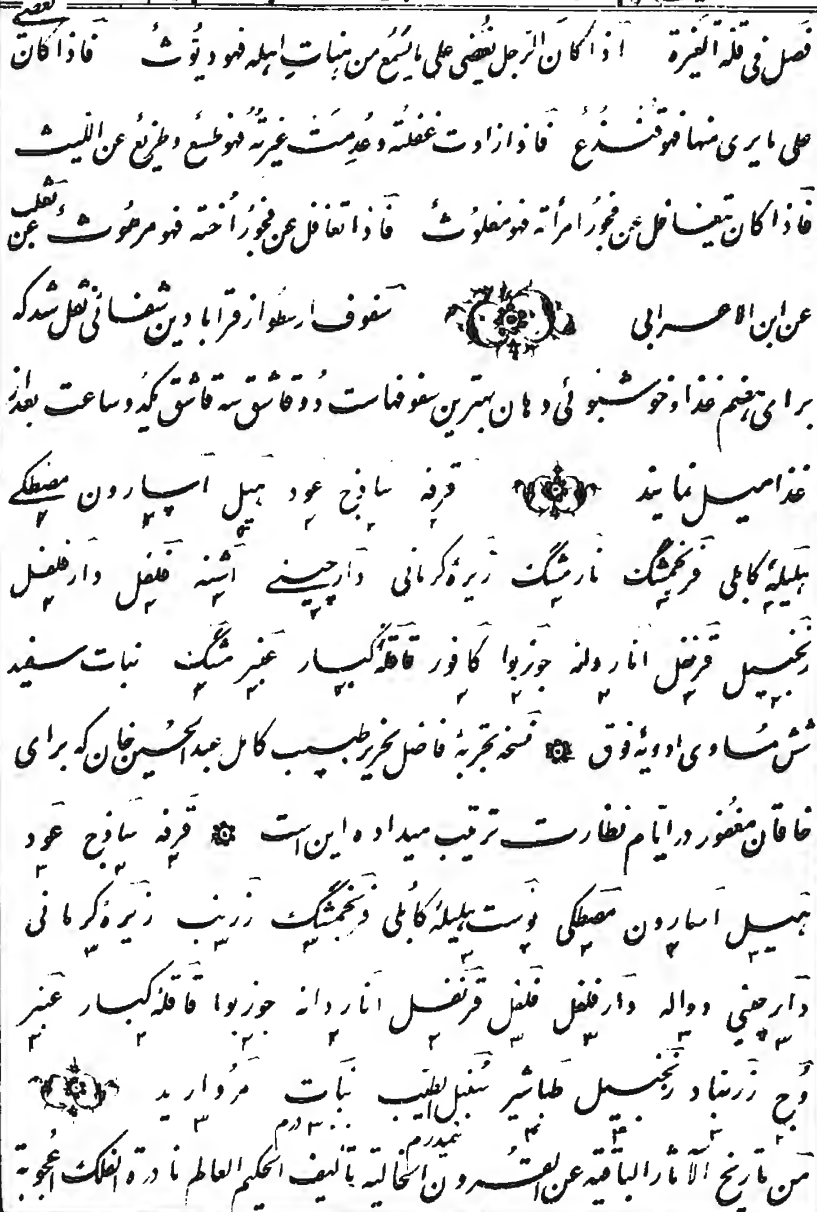 فصل فی قلة الغیرة اذا کان الرجل یُغضی علی مایسمع من هنات اهله فهو دیّوث فاذا کان یغضی
علی مایری منها فهو قنذع فاذا زادت غفلته و عُدمت غیرته فهو طسع و طزع عن اللیث
فاذا کان یتغافل عن فجور امرأته فهو مغلوث فاذا تغافل عن فجور اخته فهو مرموث عن ثعلب
عن ابن الاعرابی سفوف ارسطو از قرابادین شفائی نقل شد که
برای هضم غذا و خوشبوئی دهان بهترین سفوفهاست دو قاشق سه قاشق یکدو ساعت بعد از
غذا میل نمایند قرفه ساذج عود هیل اسارون مصطکی
هلیلهٔ کابلی فرنجمشک نارمشک زیرهٔ کرمانی دارچینی اشنه فلفل دارفلفل
زنجبیل قرنفل اناردانه جوزبوا کافور قاقلهٔ کبار عنبر مشک نبات سفید
شش مساوی ادویهٔ فوق نسخه تجربهٔ فاضل نحریر طبیب کامل عبدالحسین خان که برای
خاقان مغفور در ایام نظارت ترتیب میداده این است قرفه ساذج عود
هیل اسارون مصطکی پوست هلیلهٔ کابلی فرنجمشک زرنب زیرهٔ کرمانی
دارچینی دواله دارفلفل فلفل قرنفل اناردانه جوزبوا قاقلهٔ کبار عنبر
وج زرنباد زنجبیل طباشیر سنبل الطیب نبات مروارید
من تاریخ الآثار الباقیه عن القرون الخالیه تألیف الحکیم العالم نادرة الفلک اعجوبة